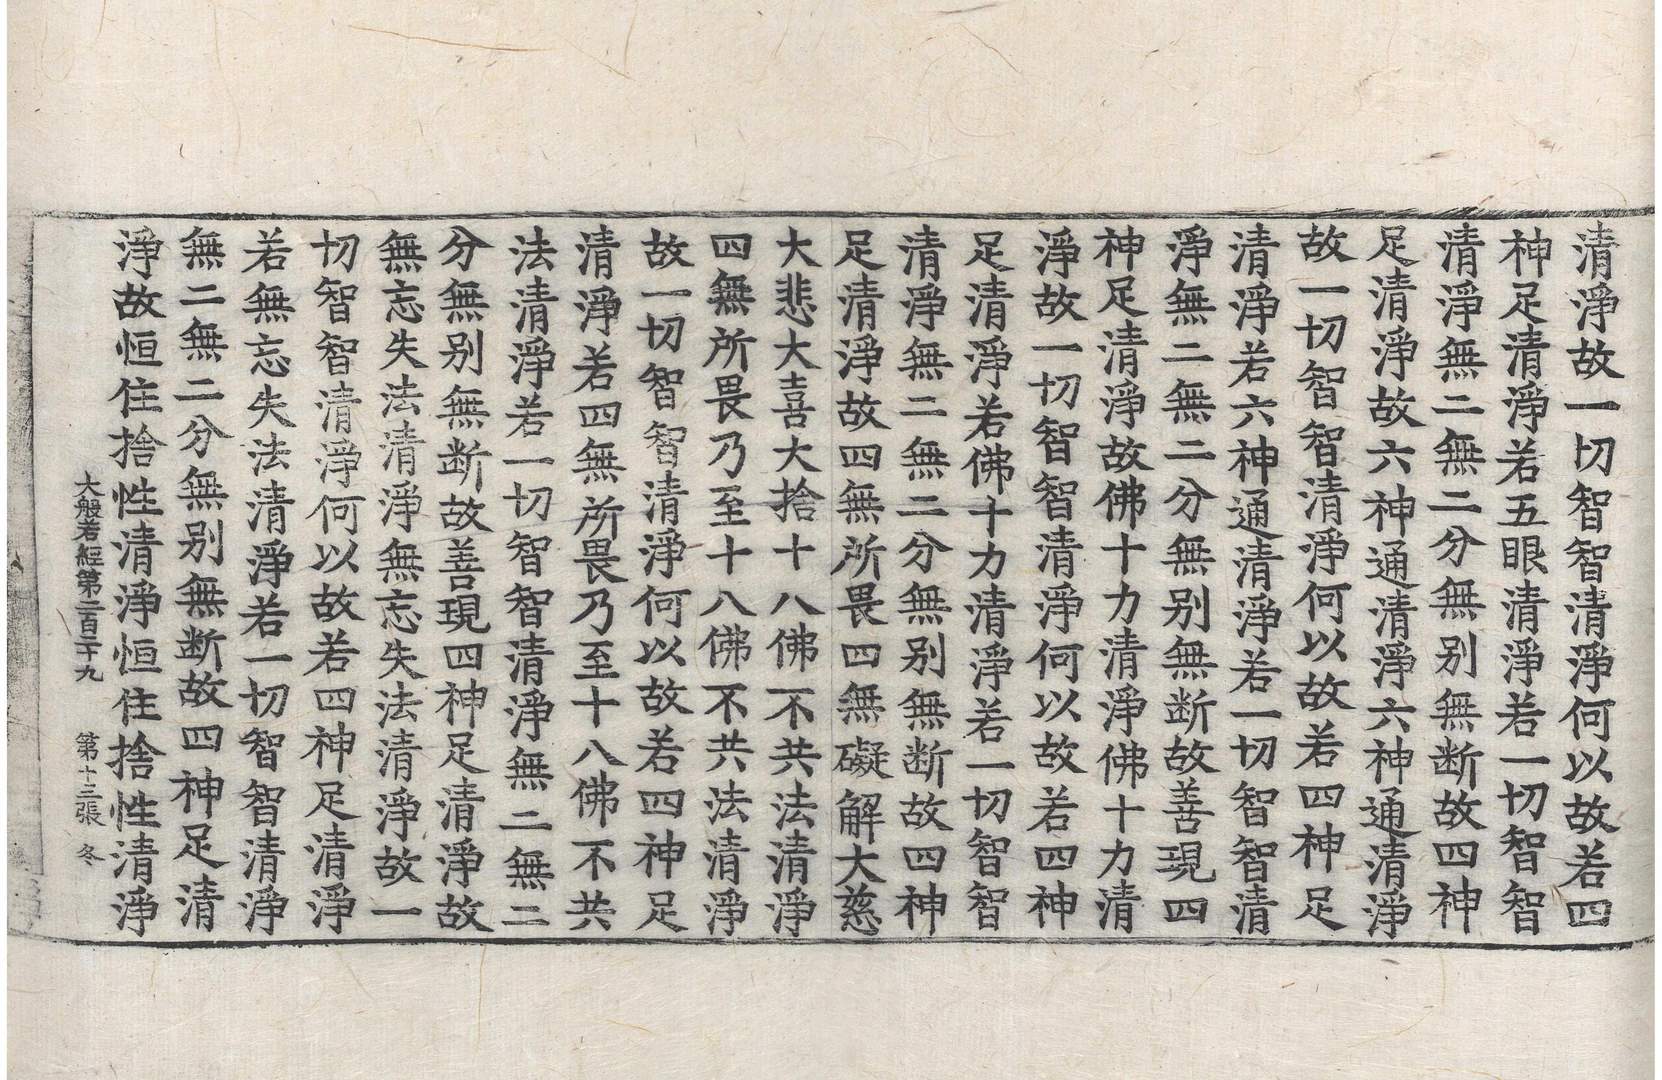 清淨故一切智智清淨何以故若四
神足清淨若五眼清淨若一切智智
清淨無二無二分無别無斷故四神
足清淨故六神通清淨六神通清淨
故一切智智清淨何以故若四神足
清淨若六神通清淨若一切智智清
淨無二無二分無别無斷故善現四
神足清淨故佛十力清淨佛十力清
淨故一切智智清淨何以故若四神
足清淨若佛十力清淨若一切智智
清淨無二無二分無别無断故四神
足清淨故四無所畏四無礙解大慈
大悲大喜大捨十八佛不共法清淨
四無所畏乃至十八佛不共法清淨
故一切智智清淨何以故若四神足
清淨若四無所畏乃至十八佛不共
法清淨若一切智智清淨無二無二
分無别無断故善現四神足清淨故
無忘失法清淨無忘失法清淨故一
切智智清淨何以故若四神足清淨
若無忘失法清淨若一切智智清淨
無二無二分無别無断故四神足清
淨故恒住捨性清淨恒住捨性清淨
大般若經第二百二十九 第十三張 冬